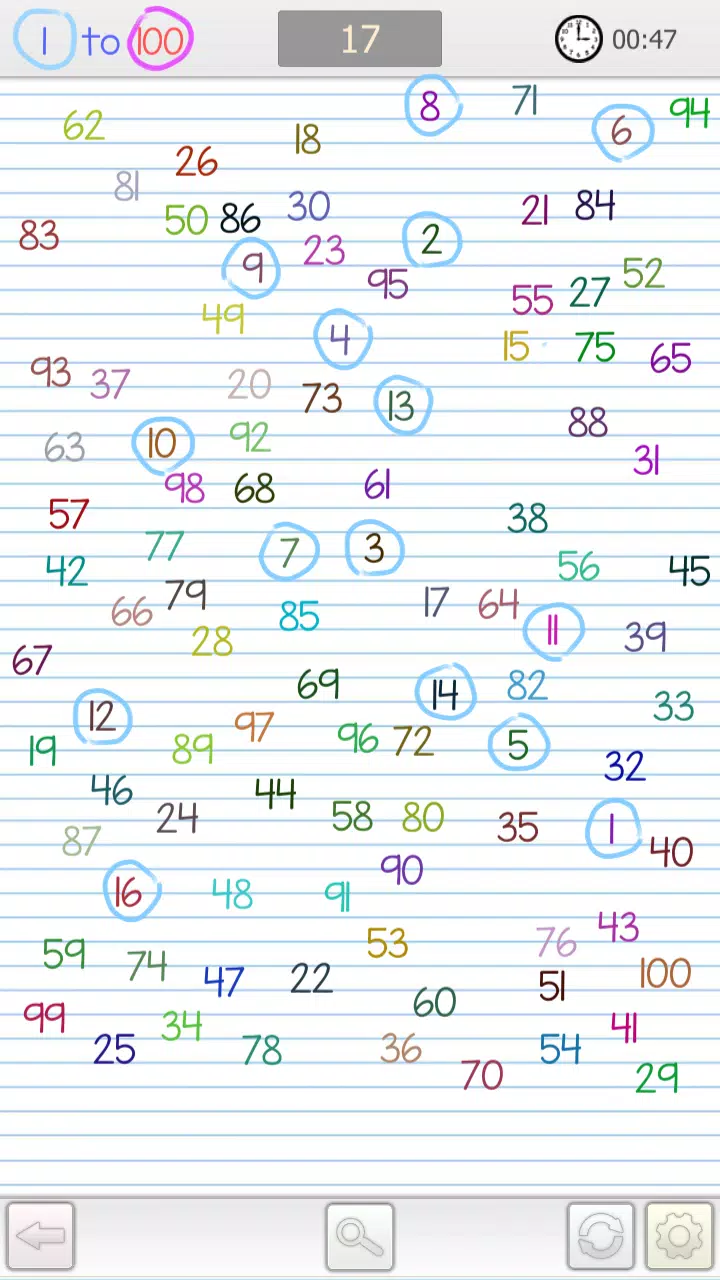 1 to 100 17 00:47
8 71 94
62 18 6
26
81
50 86 30 21 84
83 23 2
9 95 55 27 52
49 4 15 75 65
93 37 20 73 13
63 10 92 88 31
98 68 61
57 38
42 77 7 3 56 45
66 79 85 17 64 11 39
67 28
69 14 82 33
12 97 96 72 5
19 89 32
46 44
87 24 58 80 35 1 40
16 48 91 90
59 53 76 43
74 47 22 51 100
99 34 60 41
25 78 36 54
70 29